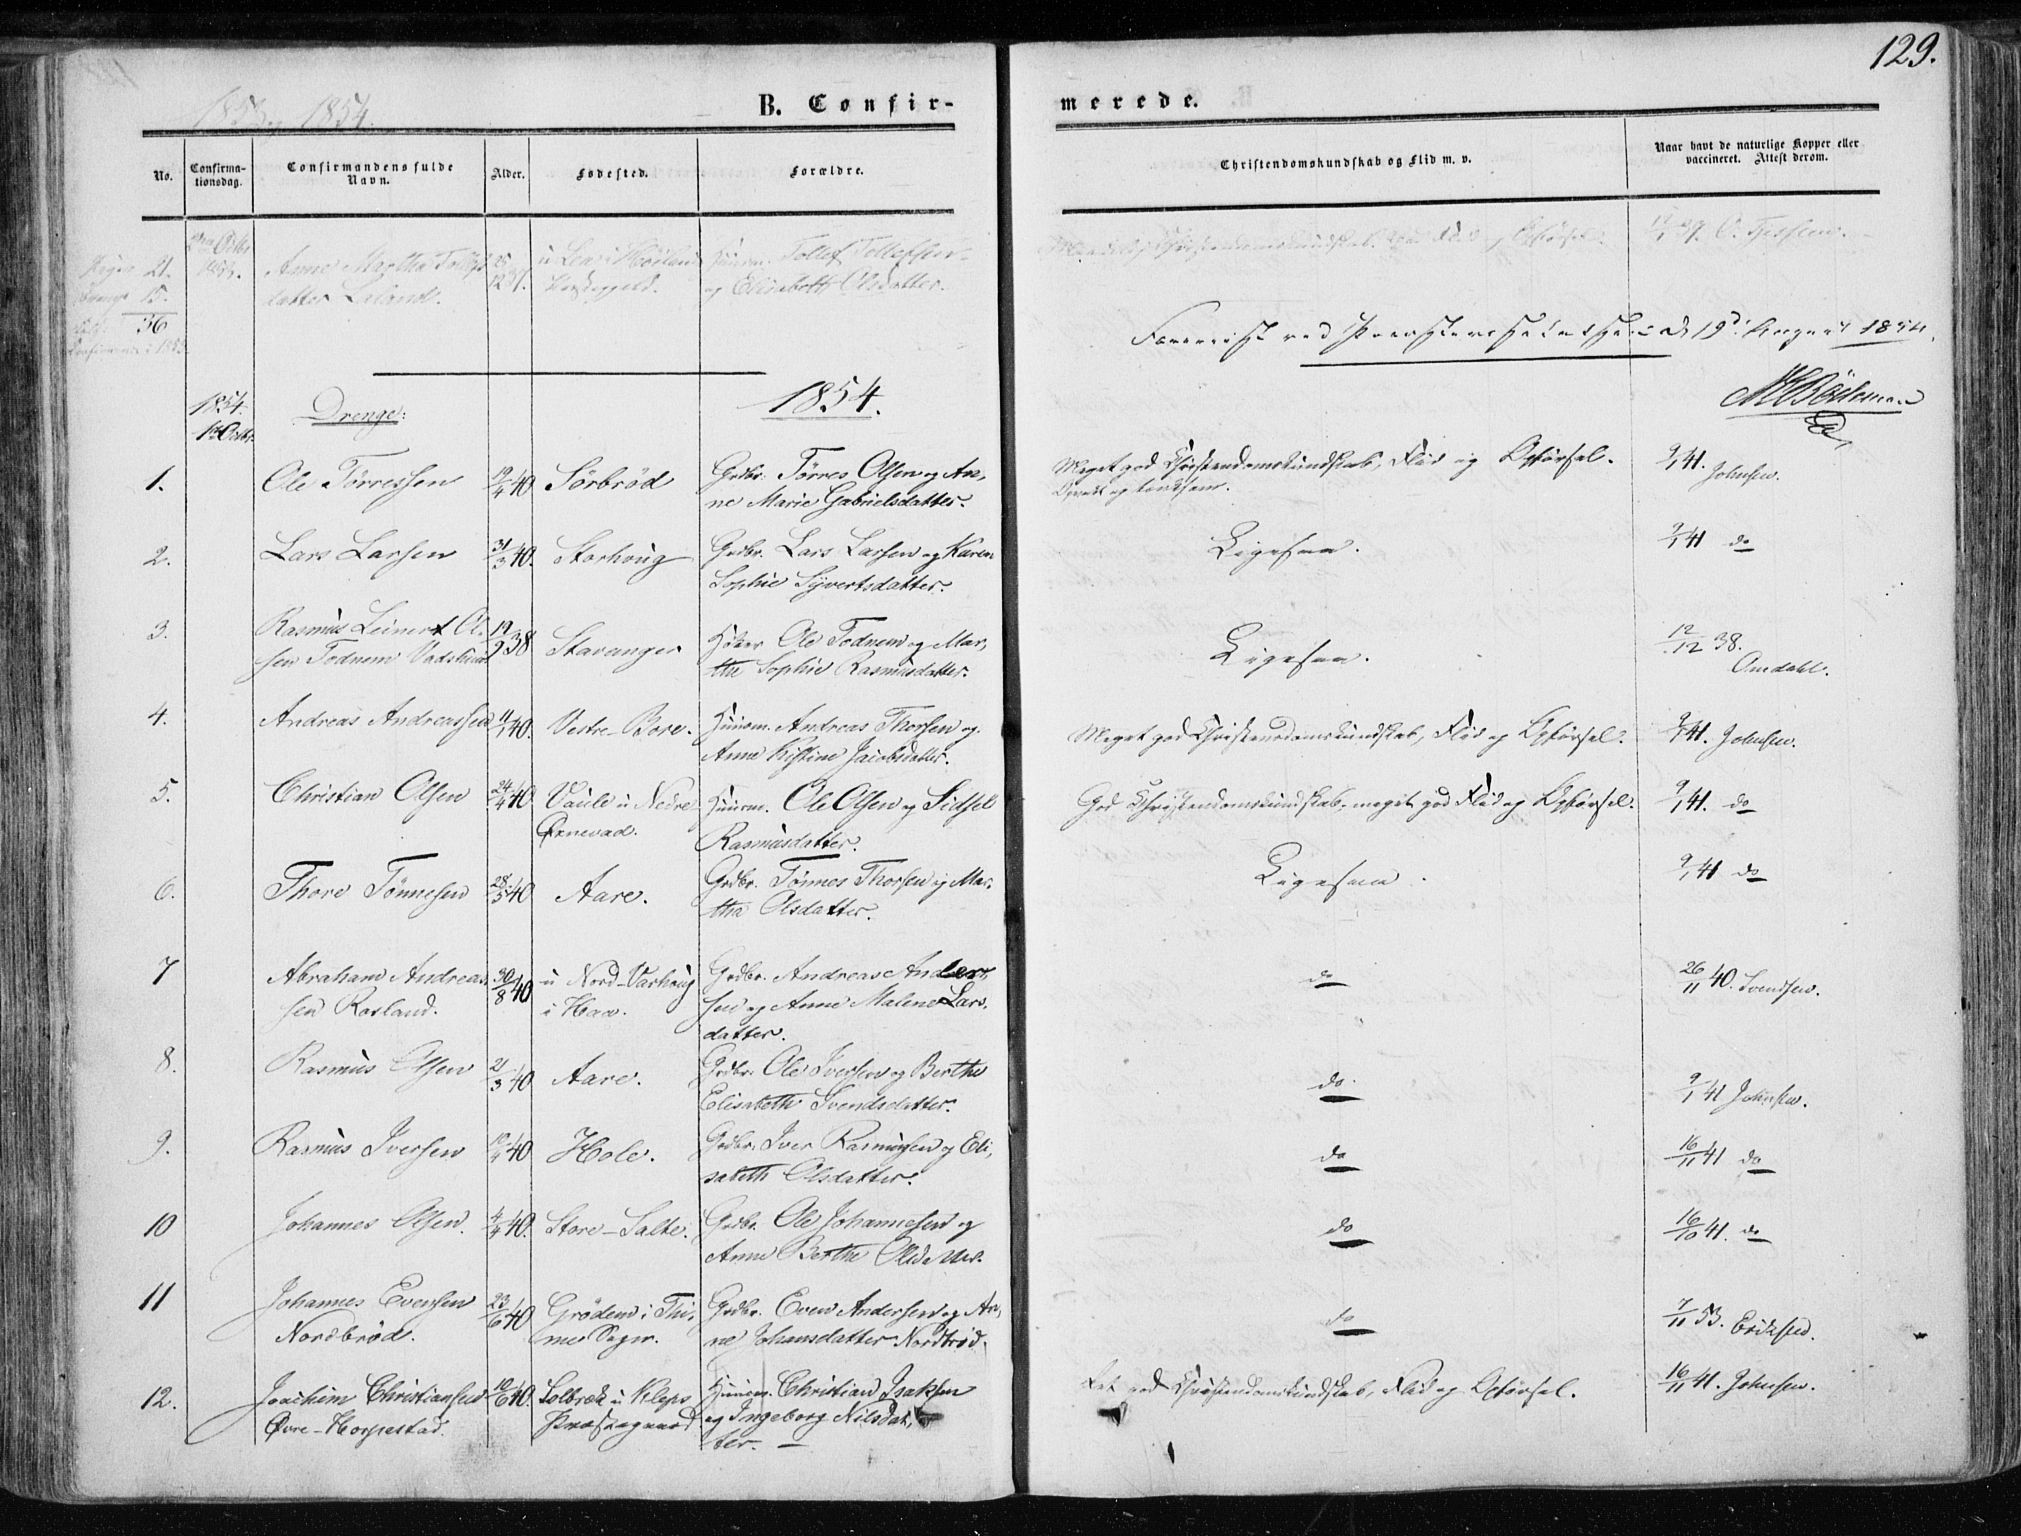 129.
1853 og 1854.
B. Confir-
merede.
No.
Confirma-
tionsdag.
Confirmandens fulde
Navn.
Alder.
Fødested.
Forældre.
Christendomskundskab og Flid m. v.
Naar havt de naturlige Kopper eller
vaccineret. Attest derom.
Piger 21.
Drenge 15.
36
Octbr
1853.
Anne Martha Tollefs-
datter Leland.
25/12 37.
Huusm. Tollef Tollefsen
og Elisabeth Olsdatter.
1854.
1 Octbr.
Drenge:
1854.
d. 19de August 1854.
1. Ole Törressen 19/4 40 Sörbröd Grdbr. Törres Olsen og An-
ne Marie Gabrielsdatter.
Meget god Christendomskundskab, Flid og Opførsel.
9/1 41. Johnsen.
2. Lars Larsen 31/3 40. Storhoug Grdbr. Lars Larsen og Karen
Sophie Syvertsdatter.
Ligesaa.
9/1 41 do
3. Rasmus Leinert Ol-
sen Todnem 19/9 38 Stavanger Ole Todnem og Mar-
tha Sophie Rasmusdatter.
Ligesaa.
12/12 38.
Omdahl.
4. Andreas Andreassen 11/1 40. Vestre-Bore. Huusm. Andreas Thorsen og
Anne Kistine Jacobsdatter.
Meget god Christendomskundskab, Flid og Opførsel.
9/1 41. Johnsen.
5. Christian Olsen 24/4 40 Vaule u Nedre
Ørnevad.
Huusm. Ole Olsen og Sidsel
Rasmusdatter.
God Christendomskundskab, meget god Flid og Opførsel.
9/1 41. do
6. Thore Tönnesen 28/5 40 Aare. Grdbr. Tönnes Thorsen og Mar-
tha Olsdatter.
Ligesaa.
9/1 41 do
7 Abraham Andreas-
sen Rosland.
30/8 40 u Nord-Varhoug
i Haa.
Grdbr. Andreas Anders-
sen og Anne Malene Lars-
datter.
do
26/11 40. Svendsen.
8. Rasmus Olsen 21/3 40 Aare. Grdbr. Ole Iversen og Berthe
Elisabeth Svendsdatter.
do.
9/1 41 Johnsen.
9. Rasmus Iversen 10/4 40 Hole. Grdbr. Iver Rasmussen og Eli-
sabeth Olsdatter.
do
16/11 41 do
10 Johannes Olsen. 4/4 40. Store-Salte. Grdbr. Ole Johannesen og
Anne Berthe
do
16/10 41. do
11 Johannes Evensen
Nordbröd.
23/6 40 Grödem i Thi-
me Sogn.
Grdbr. Even Andersen og An-
ne Johansdatter Nordbröd.
do
7/11 53. Eriksen.
12. Joachim Christiansen
Øvre-Horpestad.
10/6 40. Solbrek u Kleps
Præstegaard
Huusm. Christian Isaksen
og Ingeborg Nilsdat-
ter.
god Christendomskundskab, Flid og Opførsel.
16/11 41. Johnsen.